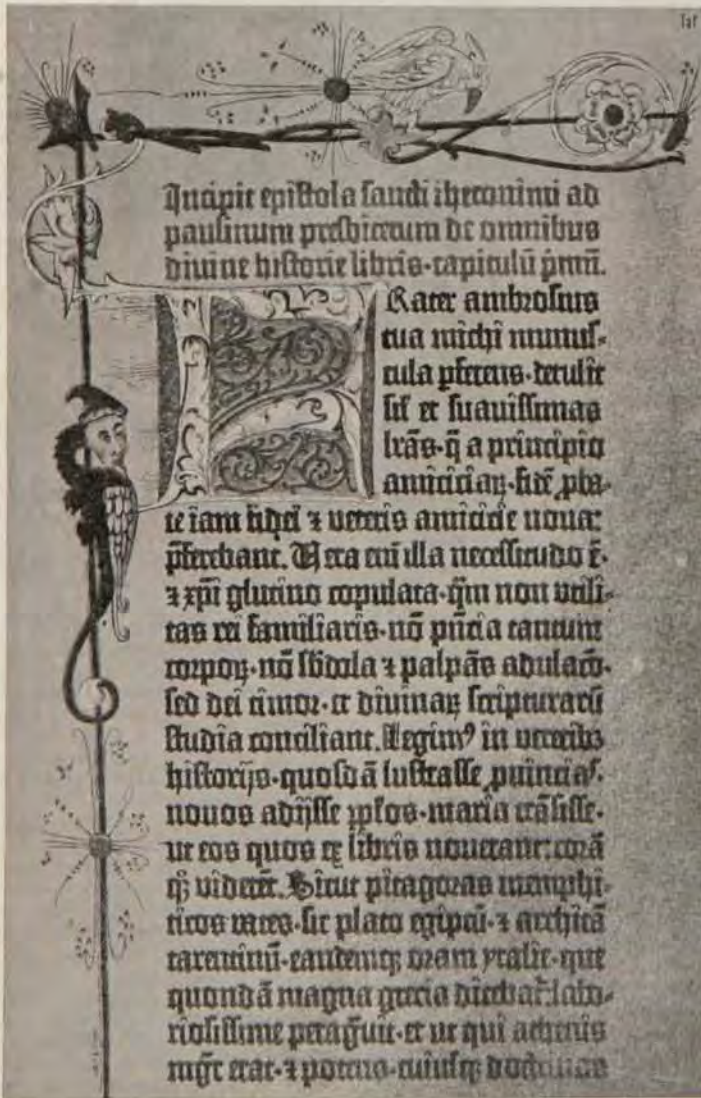 Incipit epistola sancti iheronimi ad
paulinum presbiterum de omnibus
divine historie libris·capitulū p̄mū.
Rater ambrosius
tua michi munus-
cula p̄ferens·detulit
sil̄ et suavissimas
lr̄as·q̄ a principio
amiciciaꝝ·fidē ꝓba-
te iam fidei ⁊ veteris amicicie nova:
p̄ferebant. Vera eni̅ illa necessitudo ē·
⁊ xp̄i glutino copulata·q̄m non utili-
tas rei familiaris·nō p̄ntia tantum
corpoꝝ·nō sb̄dola ⁊ palpās adulacō·
sed dei timor·et divinaꝝ scripturarū
studia conciliant. Legimꝰ in veterib⁹
historijs·quosdā lustrasse ꝓvincias·
novos adijsse ppl̄os·maria trāsisse·
ut eos quos ex libris noverant: corā
qꝫ viderēt. Sicut pitagoras memphi-
ticos vates·sic plato egiptū·⁊ architā
tarentinū·eandemqꝫ oram ytalie·que
quondā magna grecia dicebat̄: labo-
riosissime peragravit·et ut qui athenis
mgr̄ erat·⁊ potens·cuiusqꝫ doctrinas